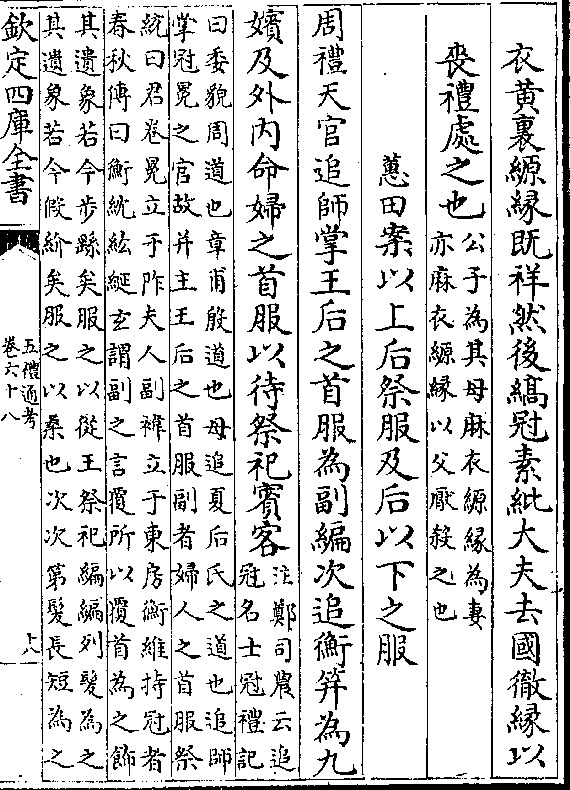 衣黃裏縓緣既祥然後縞冠素紕大夫去國徹緣以
喪禮處之也
公子為其母麻衣縓緣為妻
亦麻衣縓緣以父厭殺之也
蕙田案以上后祭服及后以下之服
周禮天官追師掌王后之首服為副編次追衡笄為九
嬪及外内命婦之首服以待祭祀賓客
注鄭司農云追
冠名士冠禮記
曰委貌周道也章甫殷道也母追夏后氏之道也追師
掌冠冕之官故并主王后之首服副者婦人之首服祭
統曰君卷冕立于阼夫人副褘立于東房衡維持冠者
春秋傳曰衡紞紘綖玄謂副之言覆所以覆首為之飾
其遺象若今步繇矣服之以從王祭祀編編列髮為之
其遺象若今假紒矣服之以桑也次次第髮長短為之
欽定四庫全書
五禮通考
卷六十八
十八